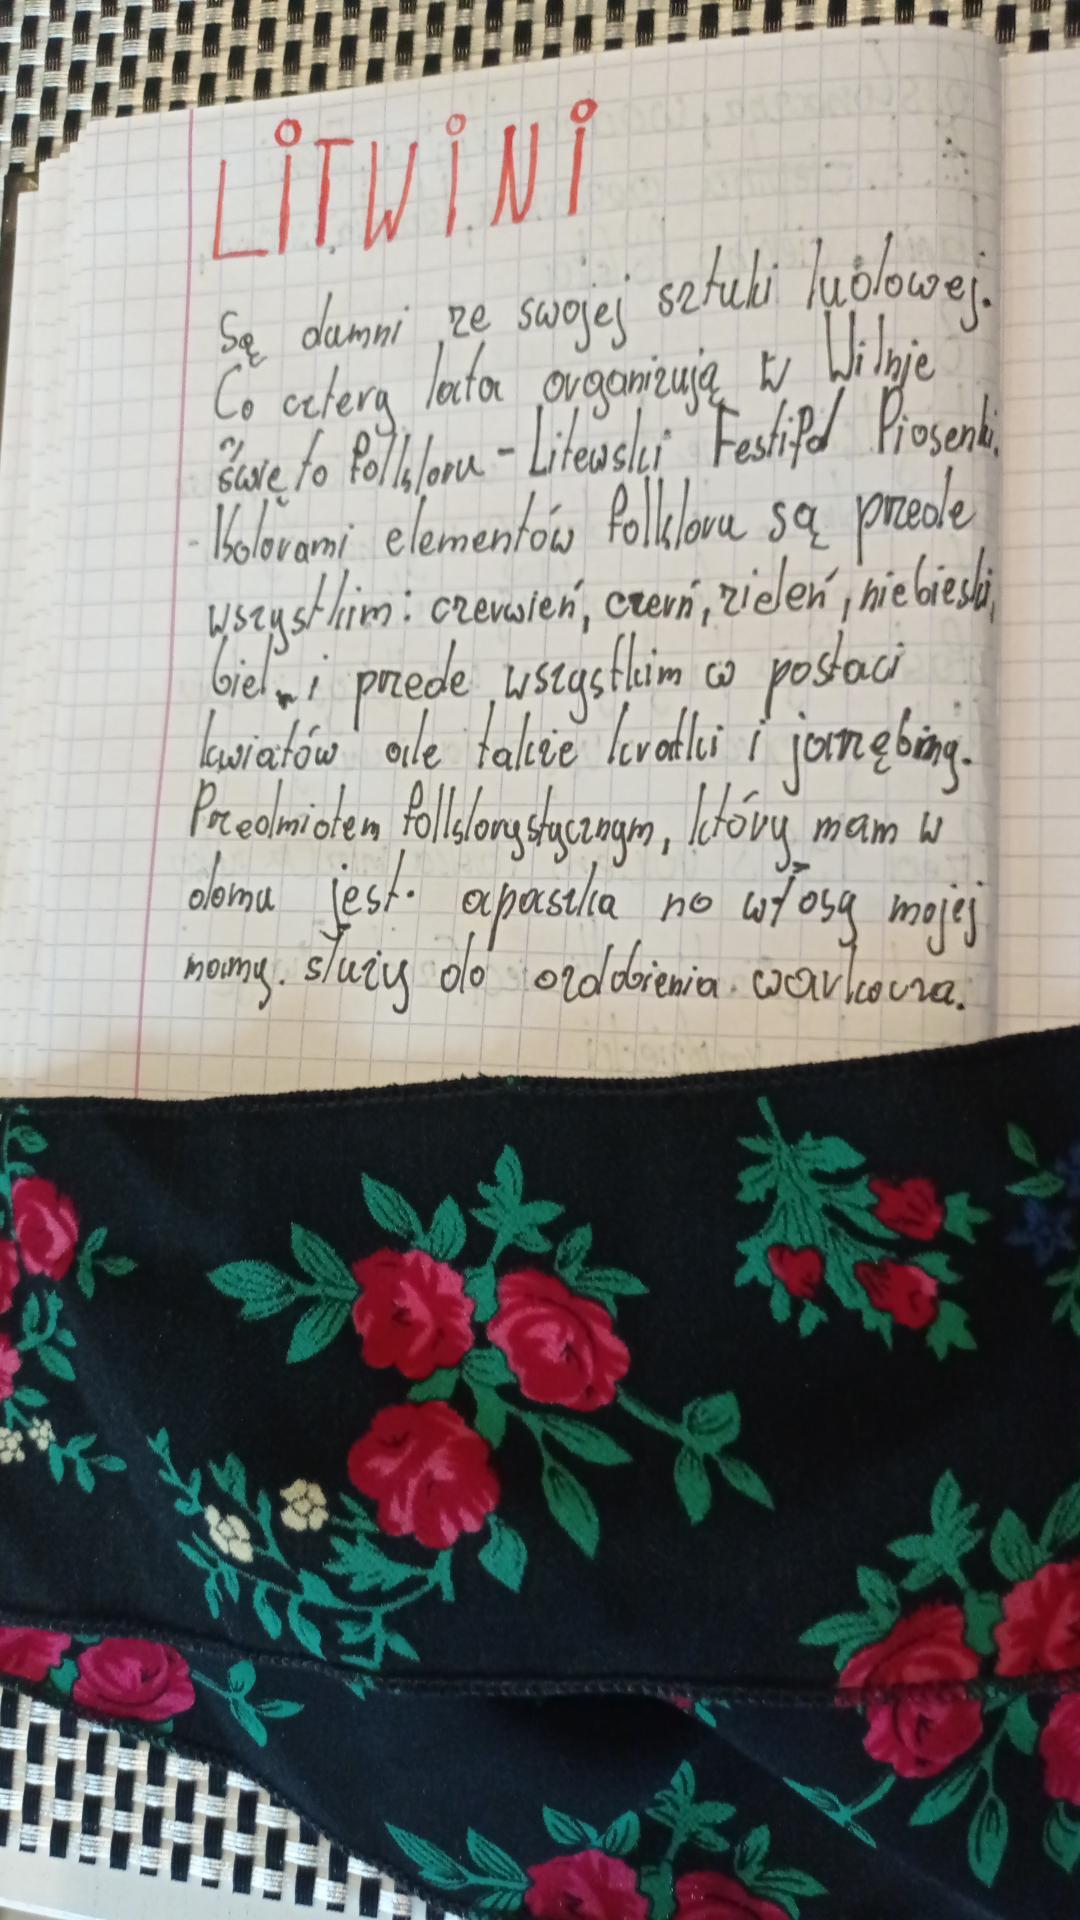 LITWINI
Są dumni ze swojej sztuki ludowej.
Co cztery lata organizują w Wilnie
święto folkloru - Litewski Festifal Piosenki.
Kolorami elementów folkloru są przede
wszystkim: czerwień, czerń, zieleń, niebieski,
biel i przede wszystkim w postaci
kwiatów ale także kratki i jarzębiny.
Przedmiotem folklorystycznym, który mam w
domu jest apaszka na włosy mojej
mamy. służy do ozdobienia warkocza.